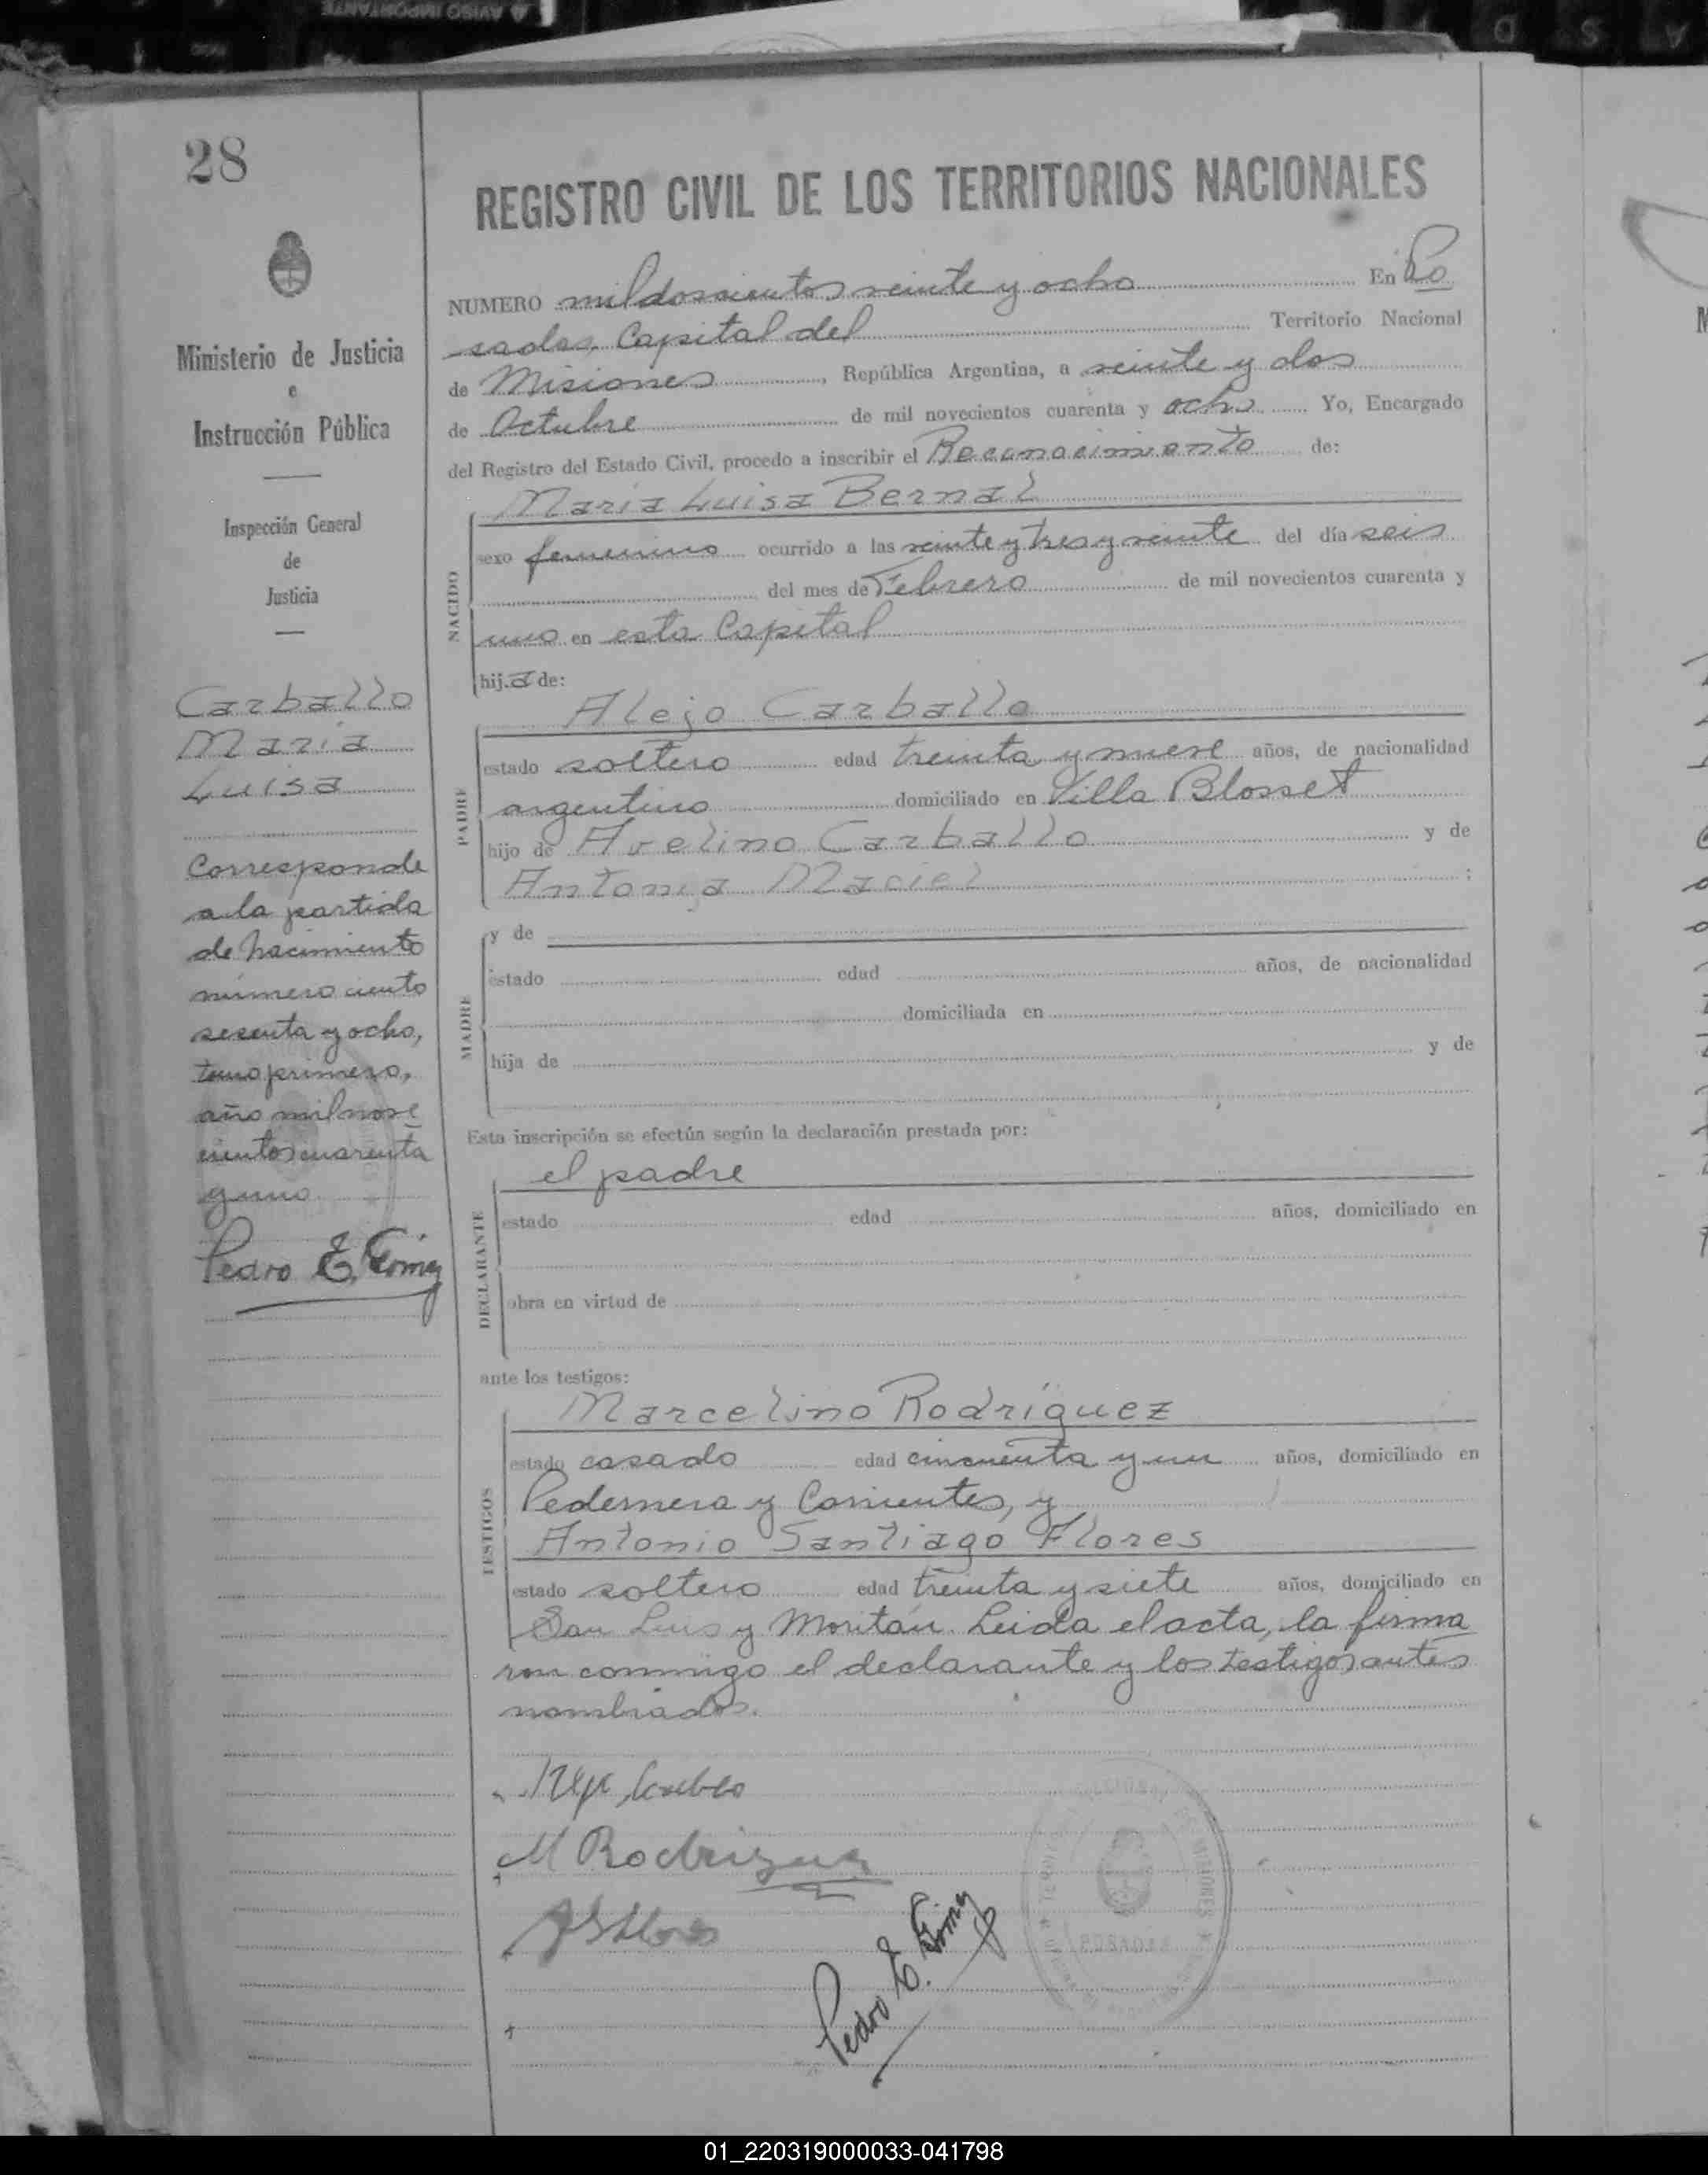 AVISO IMPORTANTE
28
REGISTRO CIVIL DE LOS TERRITORIOS NACIONALES
NUMERO mil doscientos veinte y ocho En Po
sadas, Capital del Territorio Nacional
de Misiones, República Argentina, a veinte y dos
de Octubre de mil novecientos cuarenta y ocho Yo, Encargado
del Registro del Estado Civil, procedo a inscribir el Reconocimiento de:
Maria Luisa Bernal
NACIDO
sexo femenino ocurrido a las veinte y tres y veinte del día seis
del mes de Febrero de mil novecientos cuarenta y
uno en esta Capital
hija de:
Alejo Carballo
PADRE
estado soltero edad treinta y nueve años, de nacionalidad
argentino domiciliado en Villa Blosset
hijo de Avelino Carballo y de
Antonia Maciel;
MADRE
y de
estado edad años, de nacionalidad
domiciliada en
hija de y de
Esta inscripción se efectúa según la declaración prestada por:
el padre
DECLARANTE
estado edad años, domiciliado en
obra en virtud de
ante los testigos:
Marcelino Rodríguez
TESTIGOS
estado casado edad cincuenta y un años, domiciliado en
Pedernera y Corrientes, y
Antonio Santiago Flores
estado soltero edad treinta y siete años, domiciliado en
San Luis y Moritán. Leida el acta, la firma
ron conmigo el declarante y los testigos antes
nombrados.
M Rodriguez
A S Flores
Pedro E. Gómez
POSADAS
Ministerio de Justicia
e
Instrucción Pública
Inspección General
de
Justicia
Carballo
Maria
Luisa
Corresponde
a la partida
de nacimiento
número ciento
sesenta y ocho,
tomo primero,
año mil nove
cientos cuarenta
y uno.
Pedro E. Gómez
01_220319000033-041798